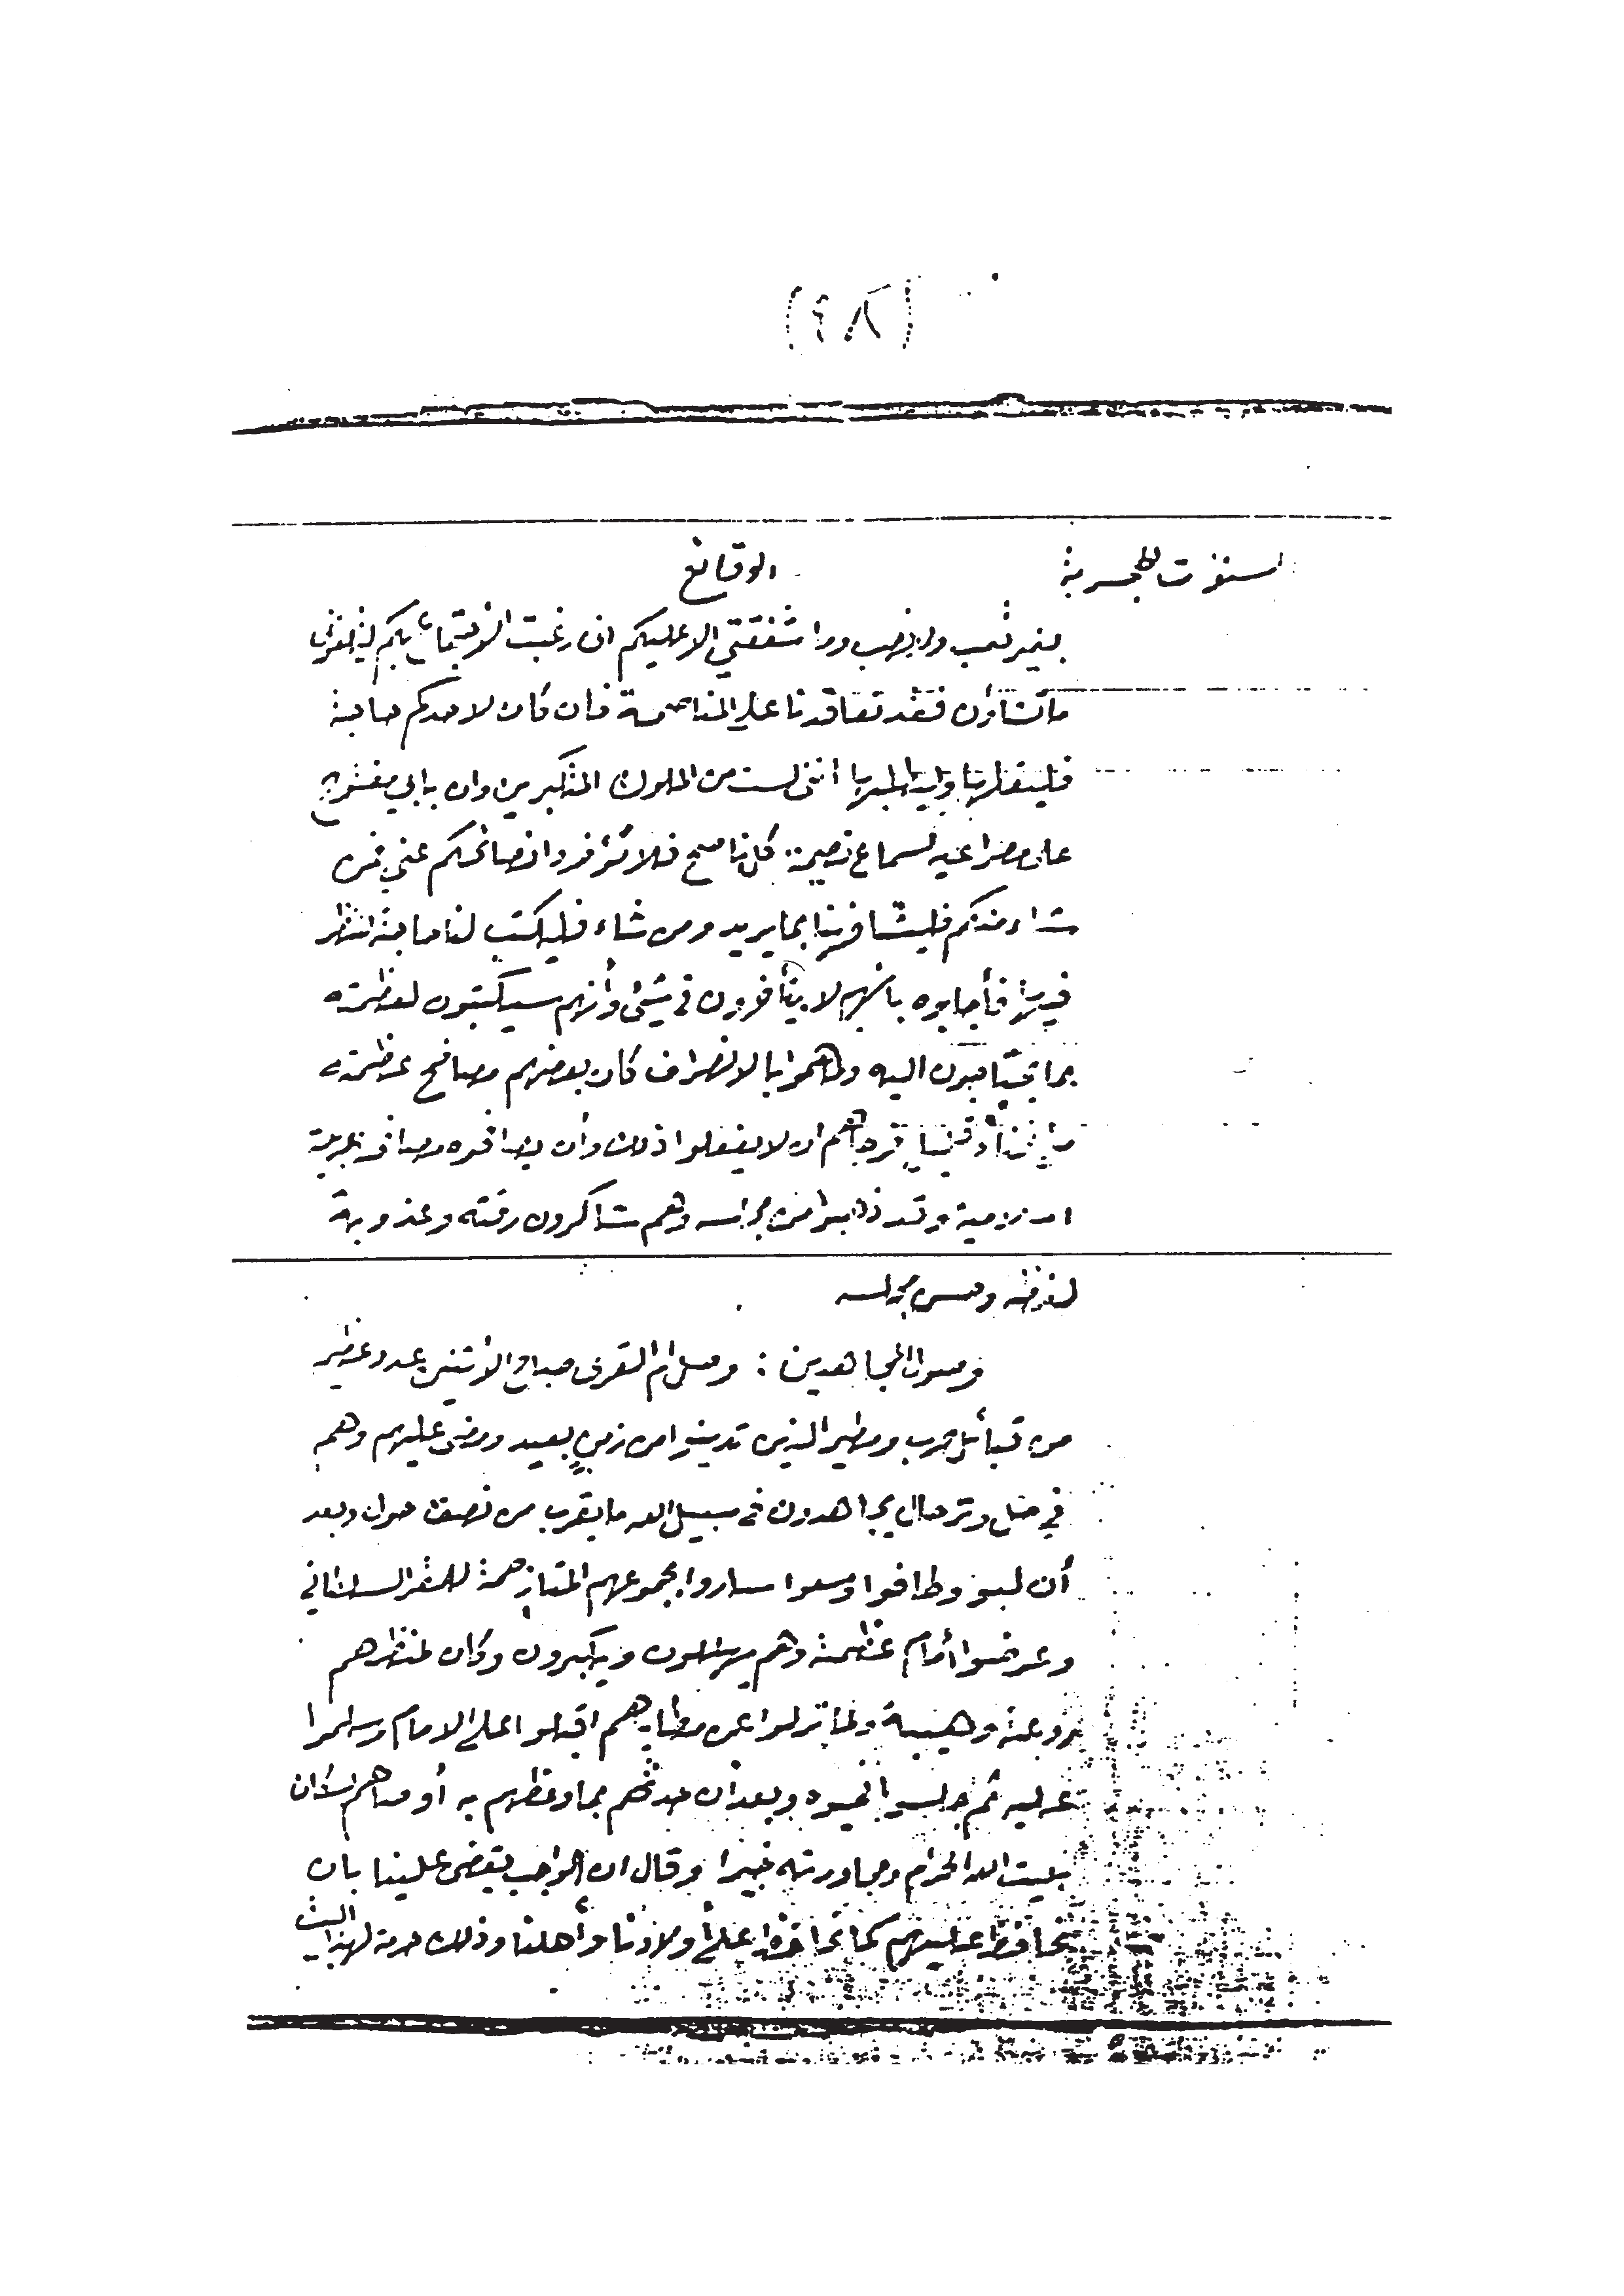 (٤٨)
السنوات الهجرية
الوقائع
بغير تعب ولا نصب وما شفقتي الا عليكم ان رغبت الاجتماع بكم
ما تشاؤن فقد تعاقدنا على المناصحة فان كان لاحدكم حاجة
انني لست من الملوك المتكبرين وان بابي مفتوح
على مصراعيه لسماع نصيحة كل ناصح فلا تؤخروا نصائحكم عني فمن
شاء منكم فليشافهنا بما يريد ومن شاء فليكتب لنا حاجته لننظر
فيها فأجابوه بانهم لا يتأخرون في شيئ وأنهم سيكتبون لعظمته
بما يحتاجون اليه ولما هموا بالانصراف كان بعضهم مصافح عظمته
ان لا يفعلوا ذلك وأن يصافحوه مصافحة عربية
اسلامية وقد ذهبوا من مجلسه وهم شاكرون رقته وعذوبة
لفظه وحسن مجلسه
وصول المجاهدين : وصل ام القرى صباح الاثنين عدد عظيم
من قبائل حرب ومطير الذين تدينوا من زمن بعيد ومضى عليهم وهم
في حل وترحال يجاهدون في سبيل الله ما يقرب من نصف حول وبعد
أن لبو وطافوا وسعوا ساروا بمجموعهم للمقر السلطاني
وعرضوا أمام عظمته وهم يهللون ويكبرون وكان لمنظرهم
روعة وهيبة ولما نزلوا عن مطاياهم اقبلوا على الامام وسلموا
عليه ثم جلسوا وبعد أن حدثهم بما وعظهم به أوصاهم بسكان
بيت الله الحرام ومجاورته خيرا وقال ان الواجب يقضى علينا بان
نحافظ عليهم كما نحافظ على أولادنا وأهلنا وذلك حرمة لهذا البيت